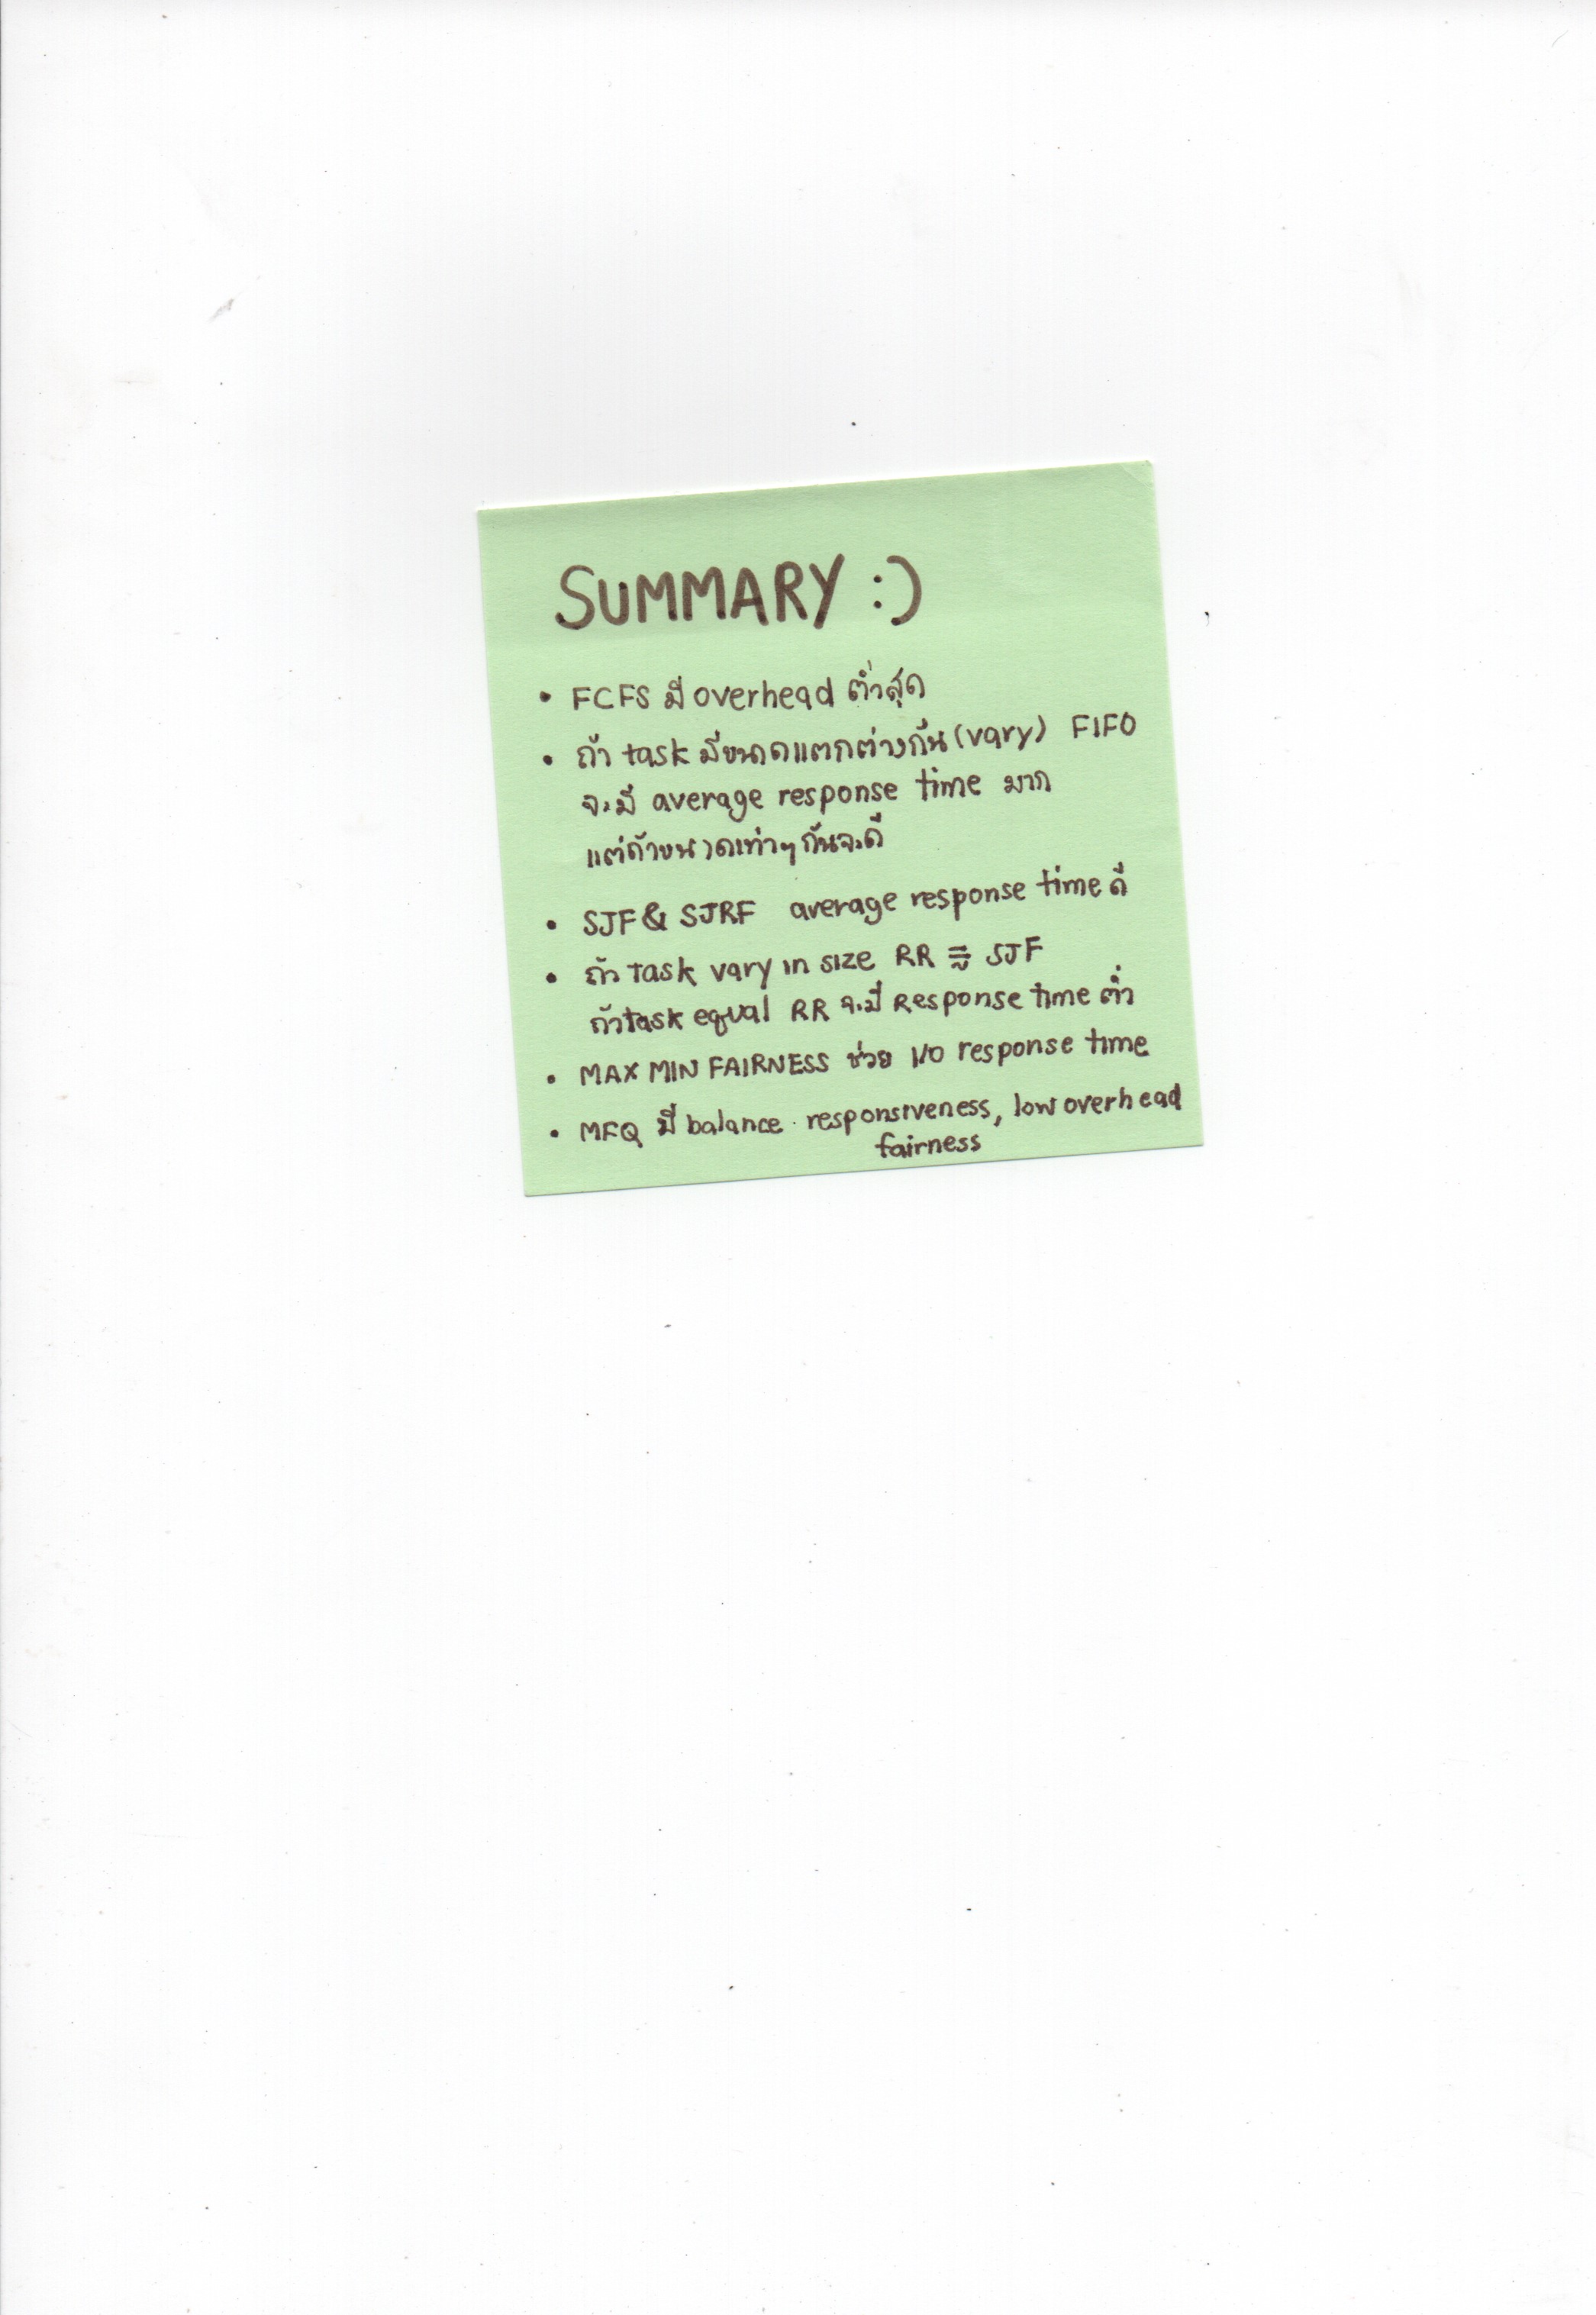 SUMMARY :)
• FCFS มี overhead ต่ำสุด
• ถ้า task มีขนาดแตกต่างกัน (vary) FIFO
จะมี average response time มาก
แต่ถ้าขนาดเท่าๆกันจะดี
• SJF & SJRF average response time ดี
• ถ้า task vary in size RR ≅ SJF
ถ้า task equal RR จะมี Response time ต่ำ
• MAX MIN FAIRNESS ช่วย I/O response time
• MFQ มี balance responsiveness, low overhead
fairness